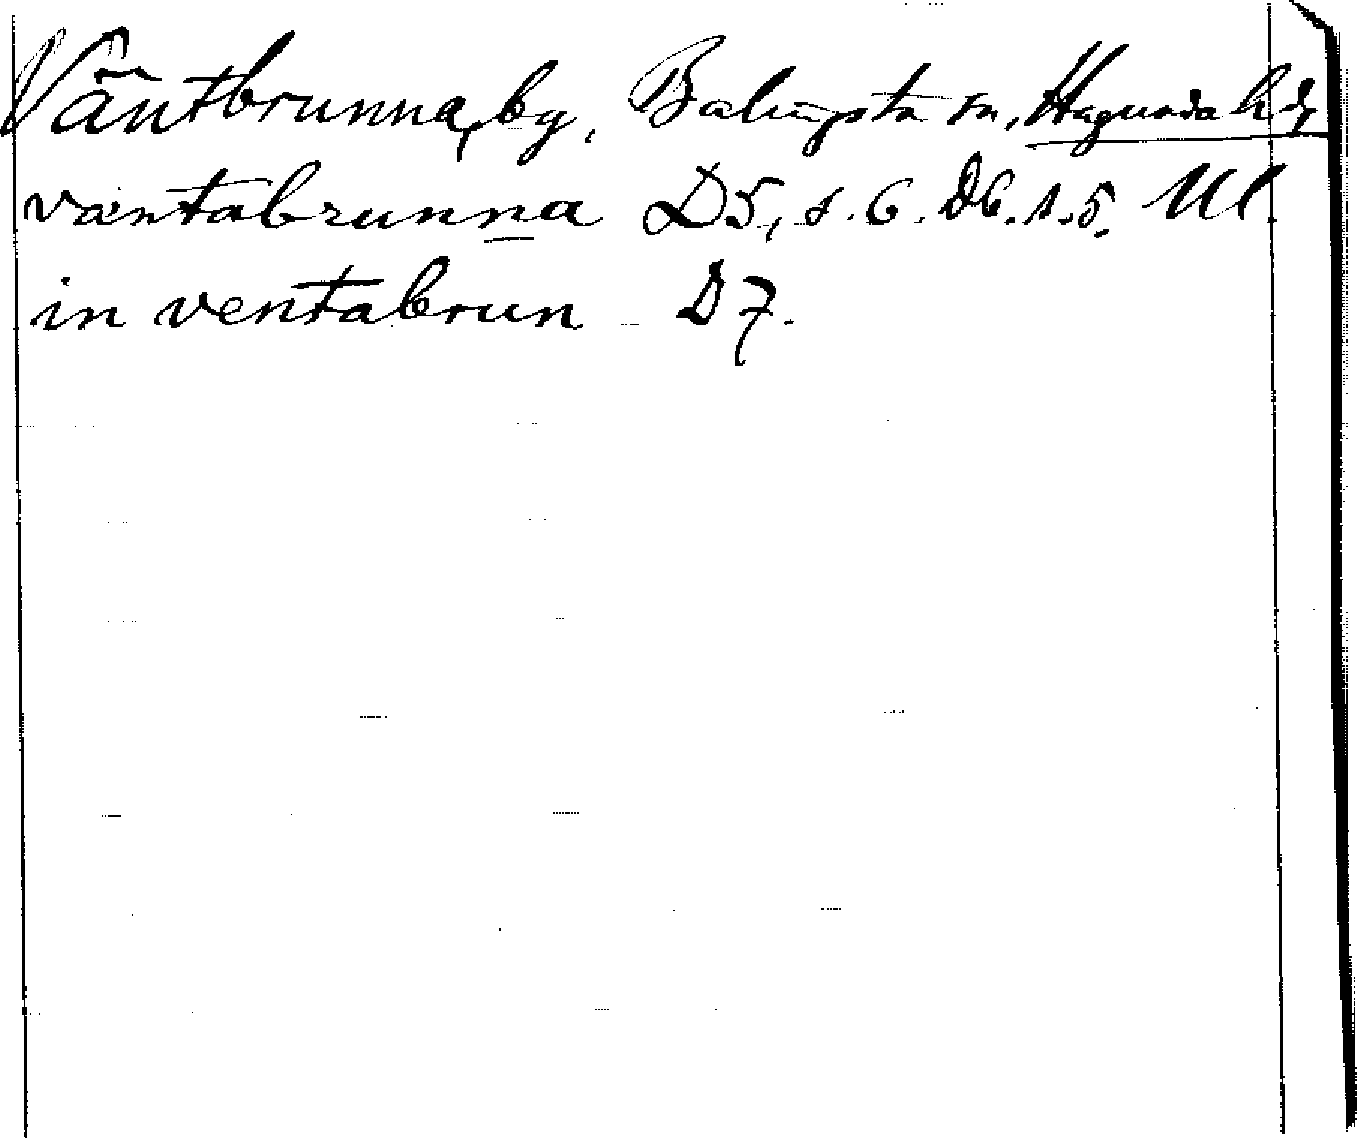 Väntbrunna, by, Balingsta sn, Hagunda hd,
vantabrunna D5, s. 6. D6. s. 5. Ul.
in ventabrun D7.